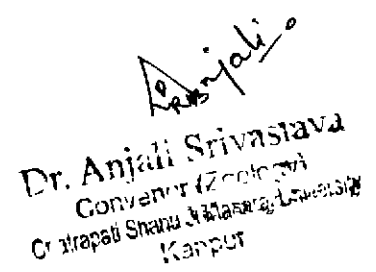 Anjali
Dr. Anjali Srivastava
Convenor (Zoology)
Chatrapati Shahu Ji Maharaj University
Kanpur